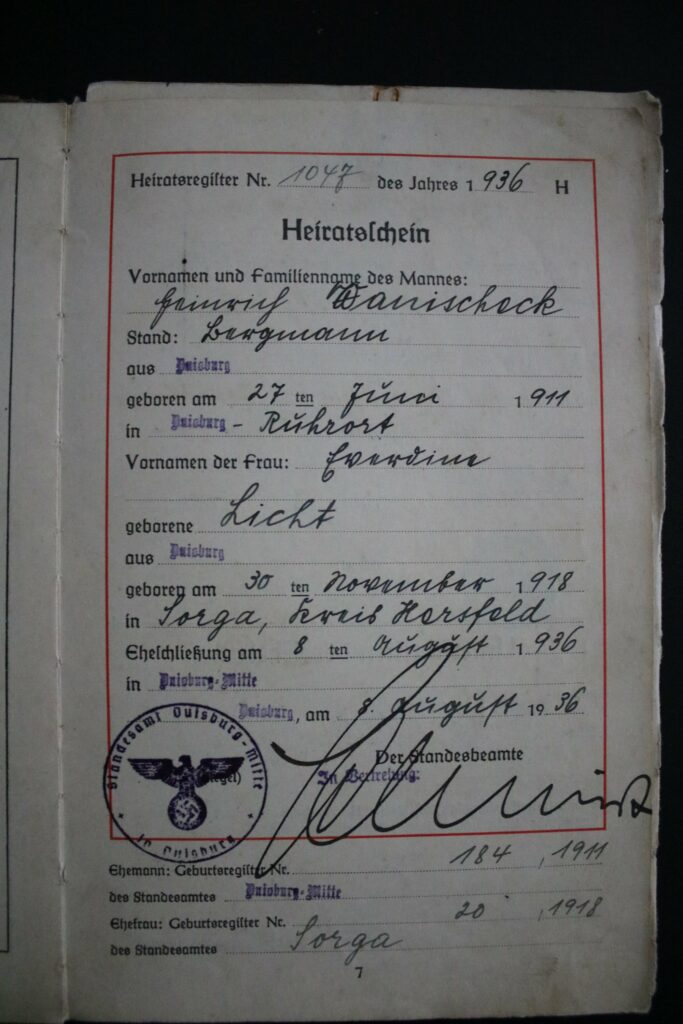 Heiratsregister Nr. 1047 des Jahres 1936 H
Heiratsschein
Vornamen und Familienname des Mannes:
Heinrich Wanischeck
Stand: Bergmann
aus Duisburg
geboren am 27 ten Juni 1911
in Duisburg - Ruhrort
Vornamen der Frau: Everdine
geborene Licht
aus Duisburg
geboren am 30 ten November 1918
in Sorga, Kreis Hersfeld
Eheschließung am 8 ten August 1936
in Duisburg-Mitte
Duisburg, am 8. August 1936
Der Standesbeamte
In Vertretung:
Standesamt Duisburg-Mitte
in Duisburg
Ehemann: Geburtsregister Nr. 184, 1911
des Standesamtes Duisburg-Mitte
Ehefrau: Geburtsregister Nr. 20, 1918
des Standesamtes Sorga
7